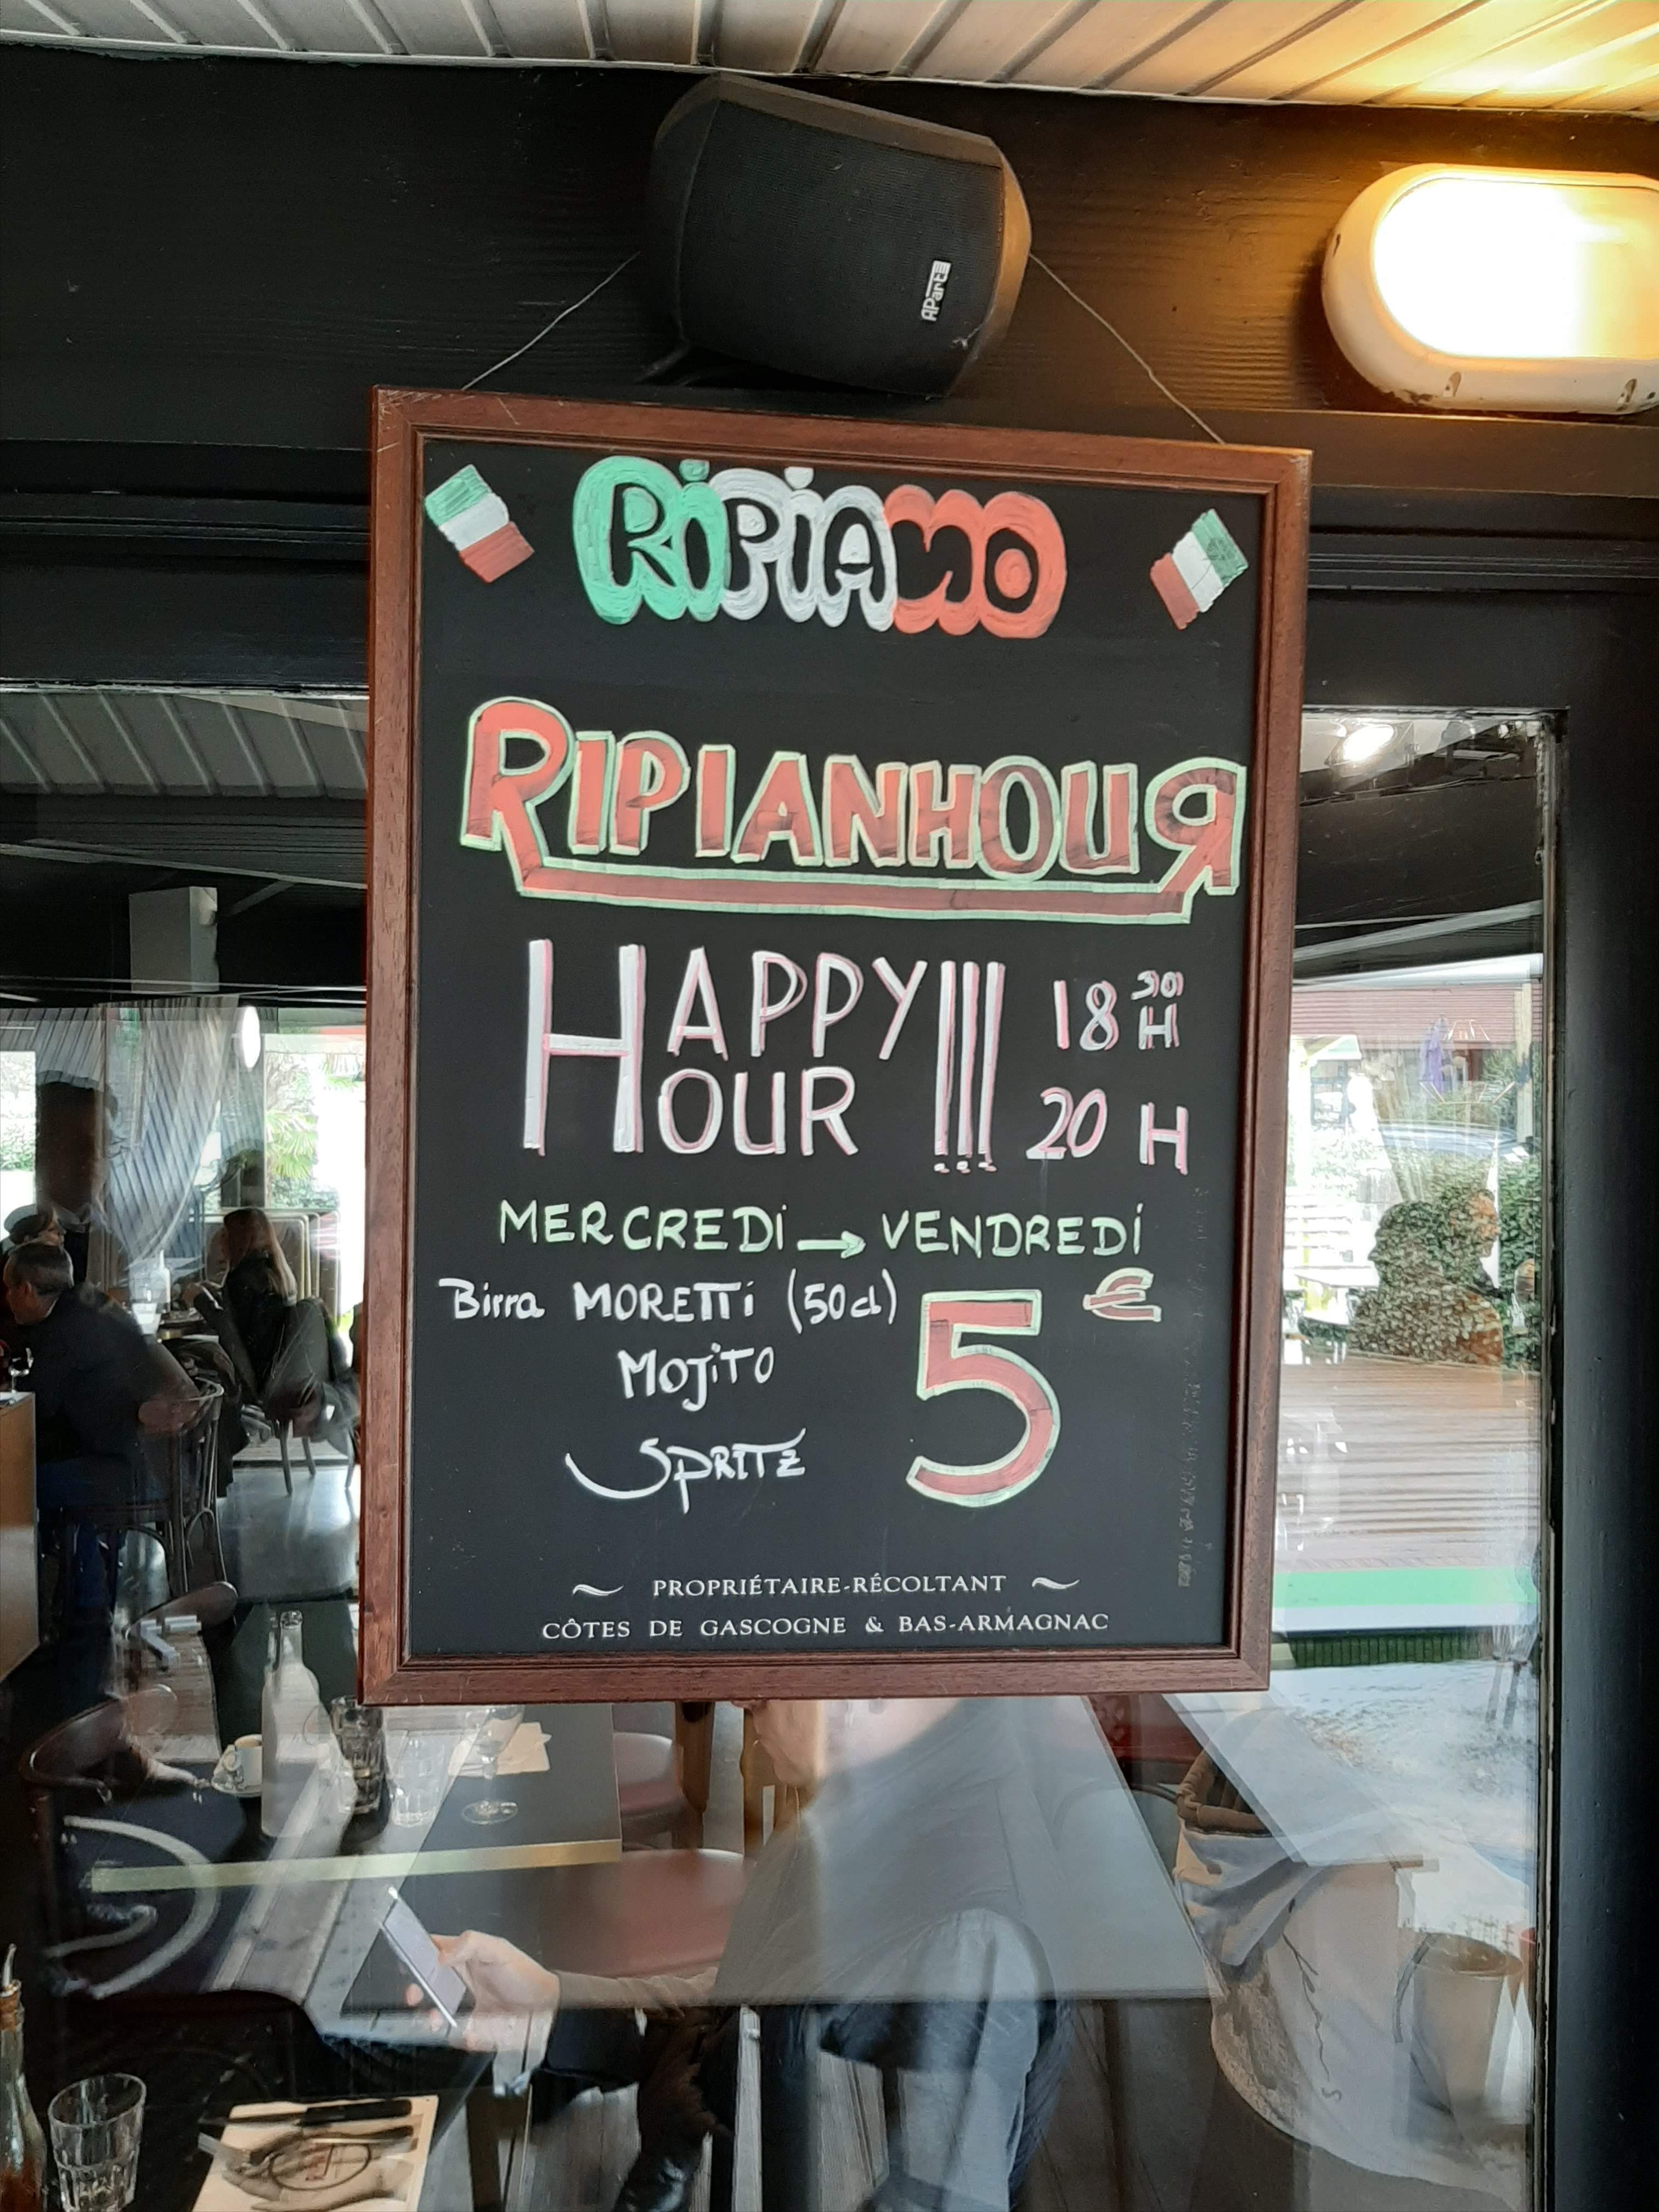 APart
RiPiAMO
RIPIANHOUR
HAPPY HOUR !!! 18H30
20 H
MERCREDi → VENDREDi
Birra MORETTi (50cl) 5 €
MOJiTO
SPRITZ
~ PROPRIÉTAIRE-RÉCOLTANT ~
CÔTES DE GASCOGNE & BAS-ARMAGNAC